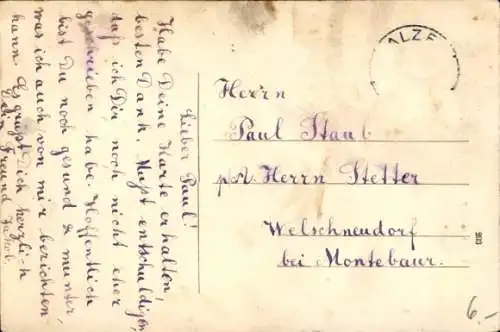 Lieber Paul!
Habe Deine Karte erhalten,
besten Dank. Mußt entschuldigen,
daß ich Dir noch nicht eher
geschrieben habe. Hoffentlich
bist Du noch gesund & munter,
was ich auch von mir berichten
kann. Es grüßt Dich herzlich
Dein Freund Jakob.
ALZE
Herrn
Paul Staub
p. A. Herrn Stetter
Welschneudorf
bei Montabaur.
6.-